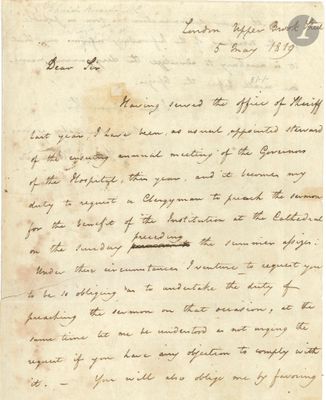 London Upper Brook Street
5 May 1819
Dear Sir
Having served the office of Sheriff
last year, I have been, as usual, appointed steward
of the ensuing annual meeting of the Governors
of the Hospital, this year, and it becomes my
duty to request a Clergyman to preach the sermon
for the benefit of the Institution at the Cathedral
on the Sunday preceding the summer assizes:
Under these circumstances I venture to request you
to be so obliging as to undertake the duty of
preaching the sermon on that occasion, at the
same time let me be understood as not urging the
request if you have any objection to comply with
it. — You will also oblige me by favoring